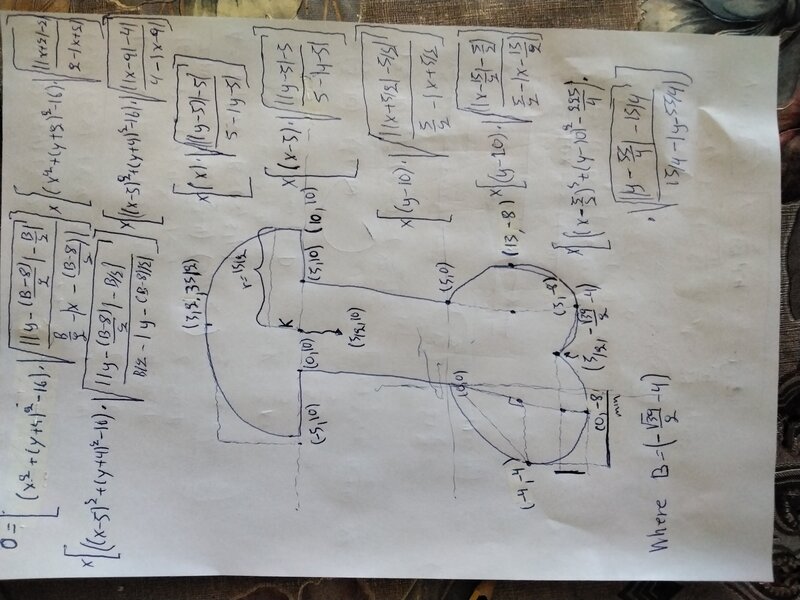 0 = [(x²+(y+4)²-16)·√(||y-(B-8)/2|-B/2| / B/2-|x-(B-8)/2|)] x[(x²+(y+3)²-16)·√(||x+2|-2| / 2-|x+2|)]
x[((x-5)²+(y+4)²-16)·√(||y-(B-8)/2|-B/2| / B/2-|y-(B-8)/2|)] x[((x-5)²+(y+4)²-16)·√(||x-9|-4| / 4-|x-9|)]
x[(x)·√(||y-5|-5| / 5-|y-5|)]
x[(x-5)·√(||y-5|-5| / 5-|y-5|)]
x[(y-10)·√(||x+5/2|-5/2| / 5/2-|x+5/2|)]
x[(y-10)·√(||x-15/2|-5/2| / 5/2-|x-15/2|)]
x[((x-5/2)²+(y-10)²-225/4)·
√(||y-55/4|-15/4| / 15/4-|y-55/4|)]
r=15/2
K
(-5,10)
(0,10)
(5,10)
(10,10)
(5/2,10)
(0,0)
(5,0)
(-4,-4)
(13,-8)
(0,-8)
min
(5,-8)
(5/2, -√39/2 -4)
Where B=(-√39/2 -4)